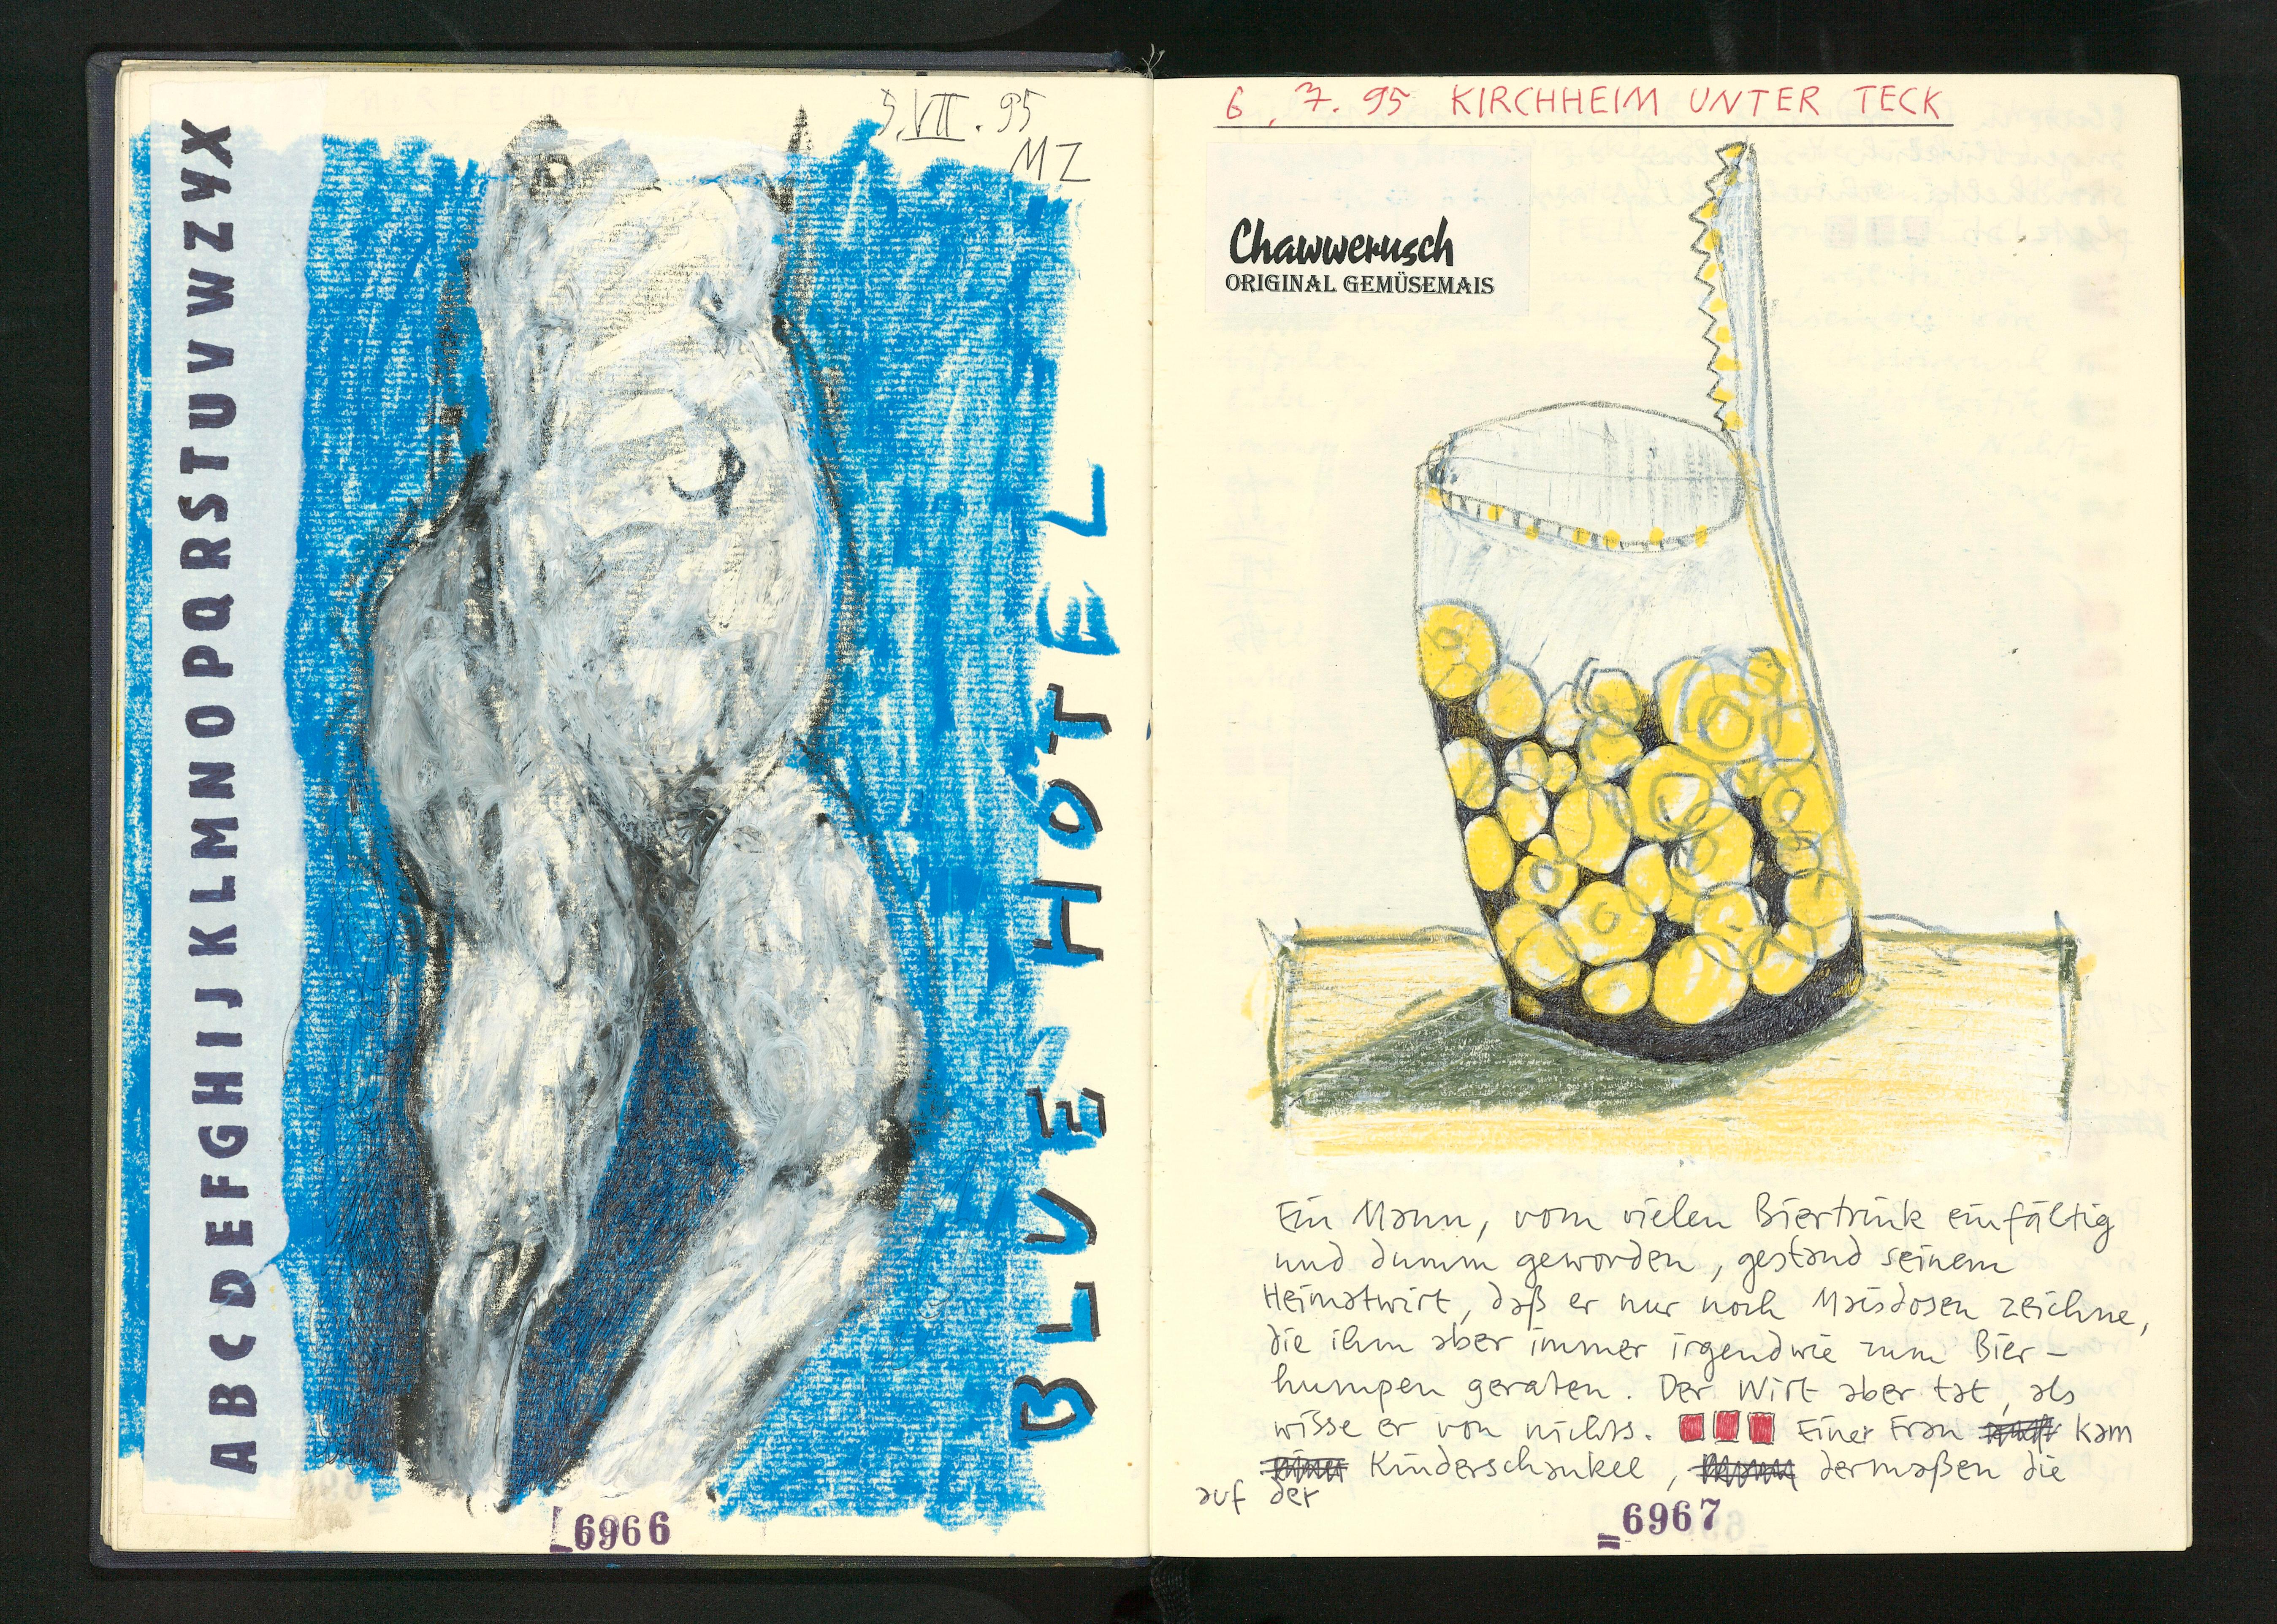 5.VII.95
MZ
A B C D E F G H I J K L M N O P Q R S T U V W Z Y X
BLUE HOTEL
6966
6.7.95 KIRCHHEIM UNTER TECK
Chawwerusch
ORIGINAL GEMÜSEMAIS
Ein Mann, vom vielen Biertrink einfältig
und dumm geworden, gestand seinem
Heimatwirt, daß er nur noch Maisdosen zeichne,
die ihm aber immer irgendwie zum Bier-
humpen geraten. Der Wirt aber tat, als
wisse er von nichts. Einer Frau kam
Kinderschaukel, dermaßen die
auf der
6967